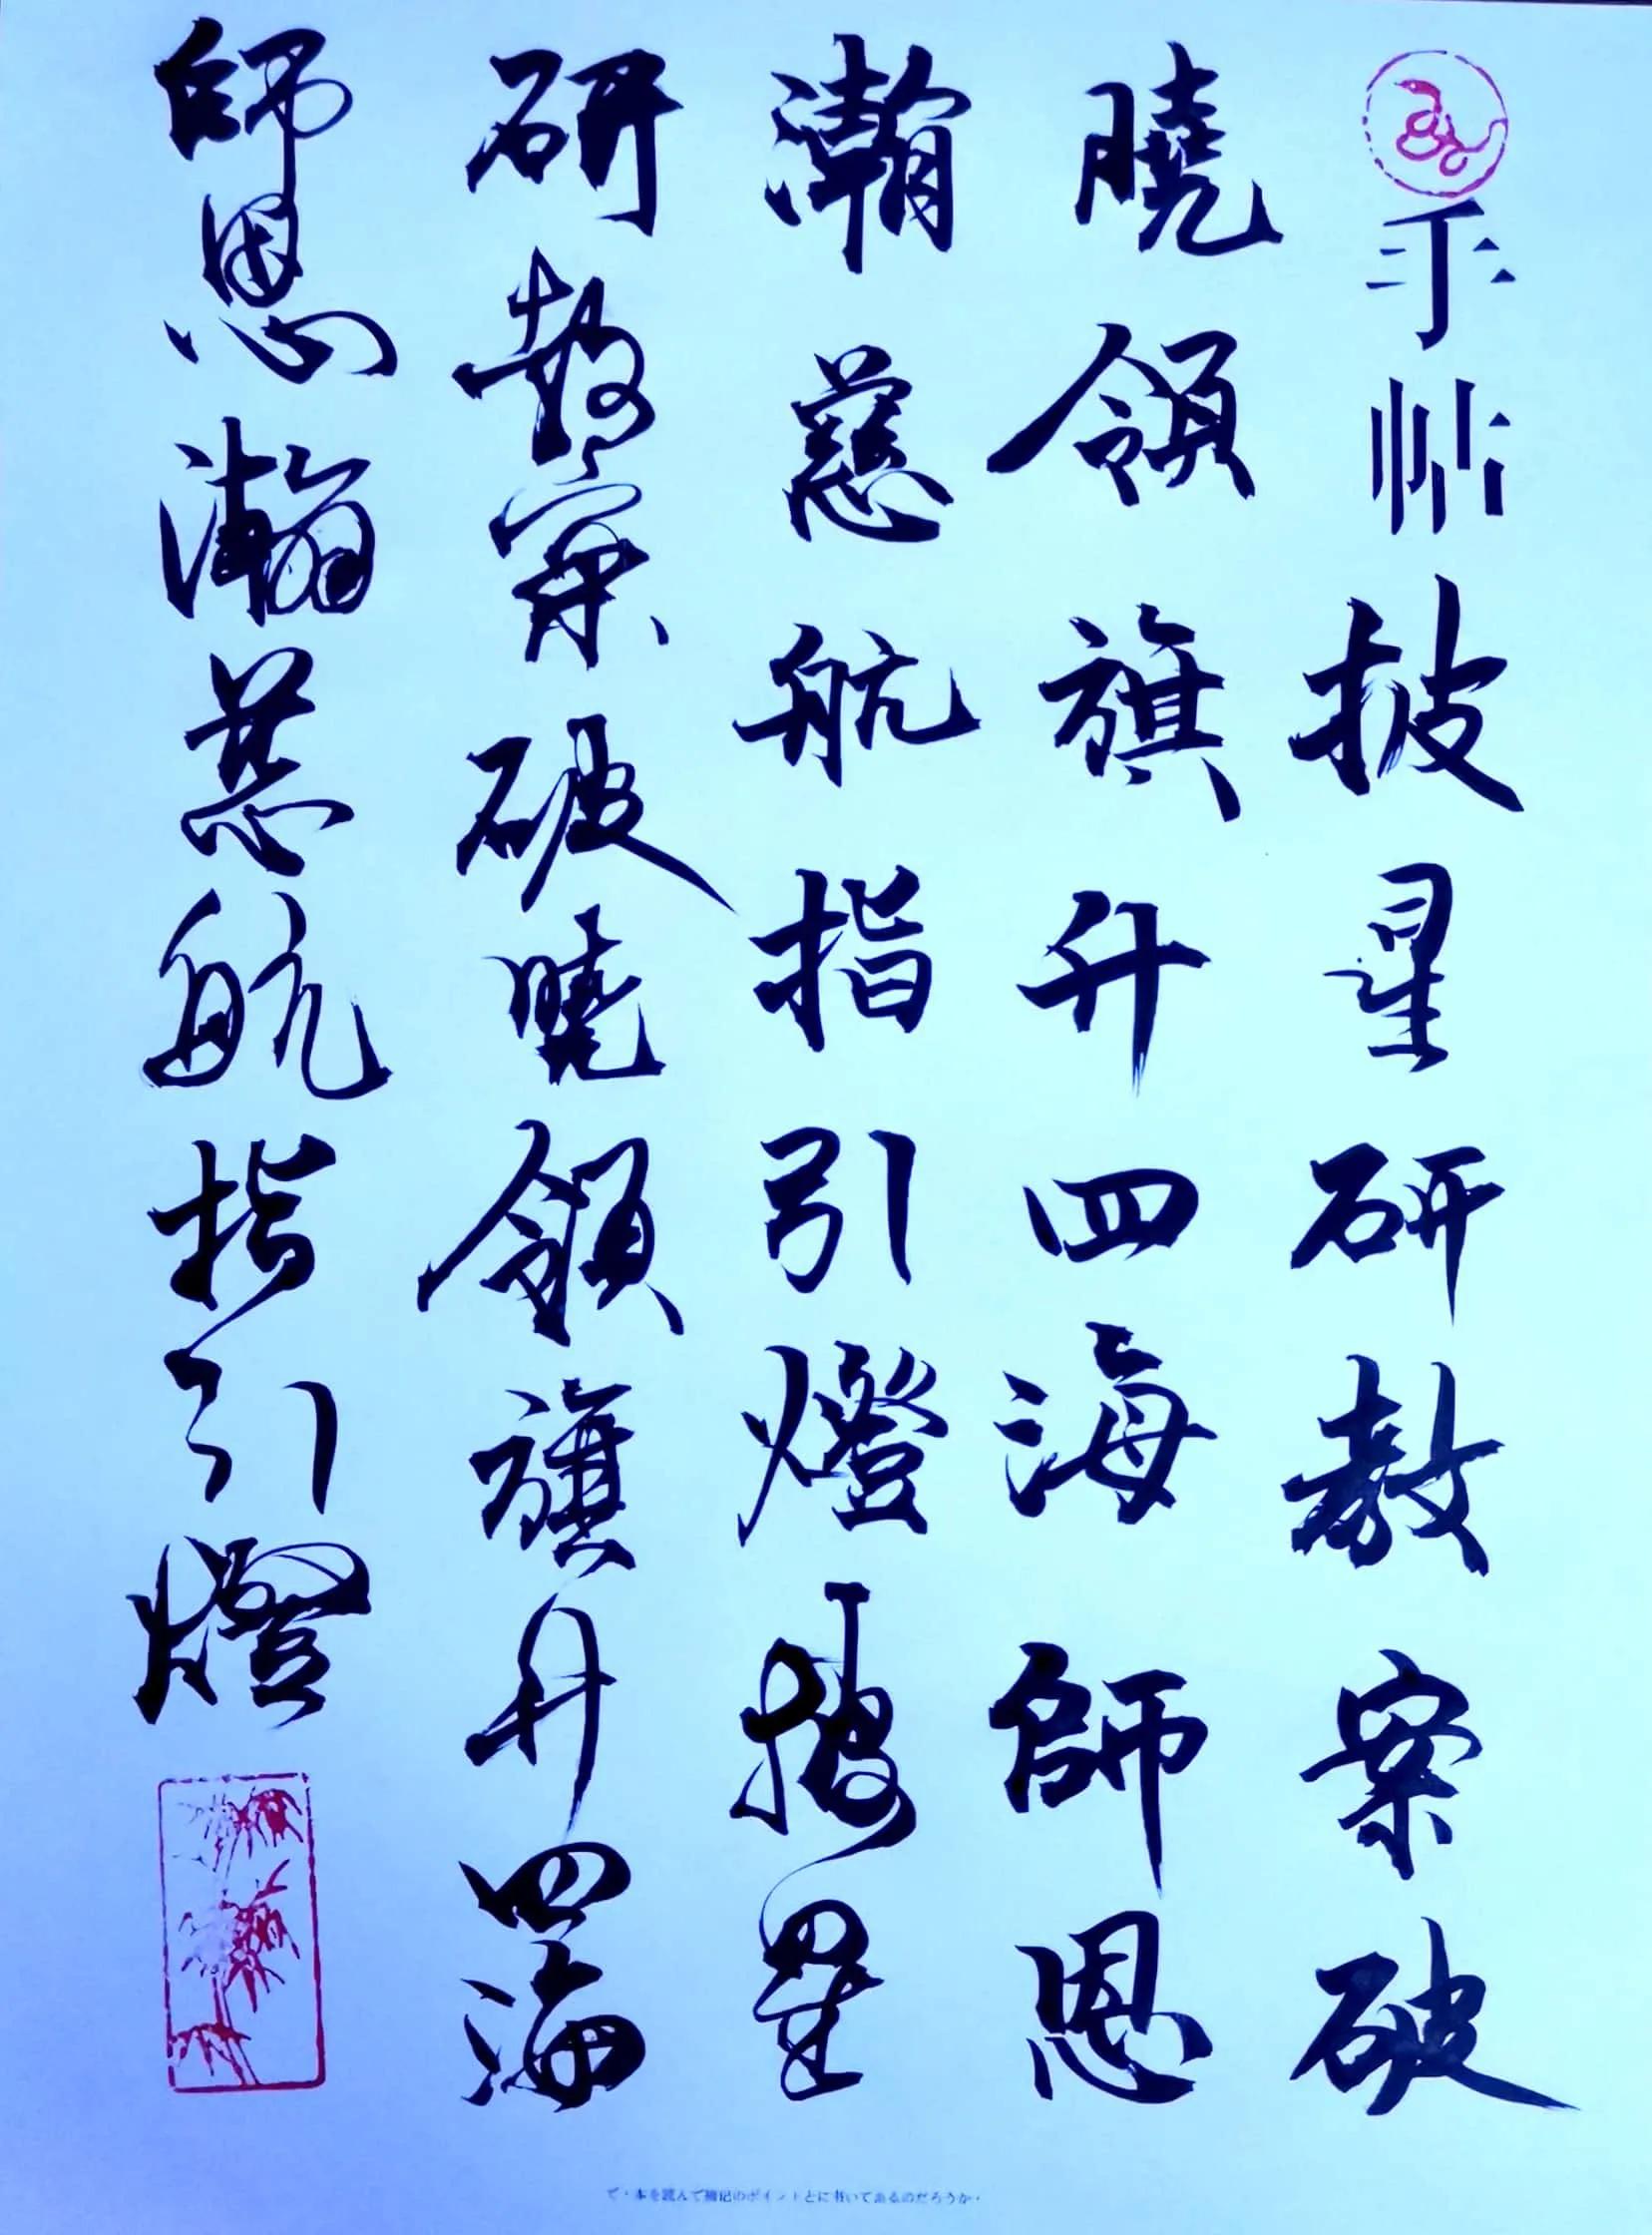 手帖披星研教案破
曉領旗升四海師恩
瀚慈航指引燈披星
研教案破曉領旗升四海
師恩瀚慈航指引燈
で・本を読んで のポイントとに書いてあるのだろうか・